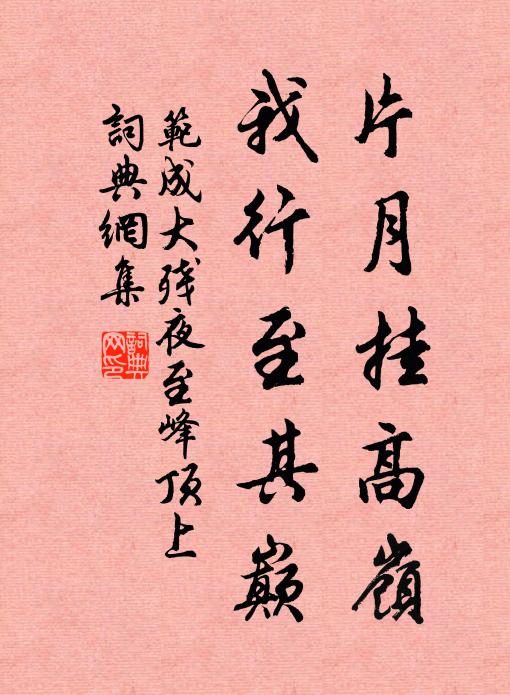 片月挂高嶺
我行至其巔
範成大残夜至峰顶上
詞典網集
詞典網印